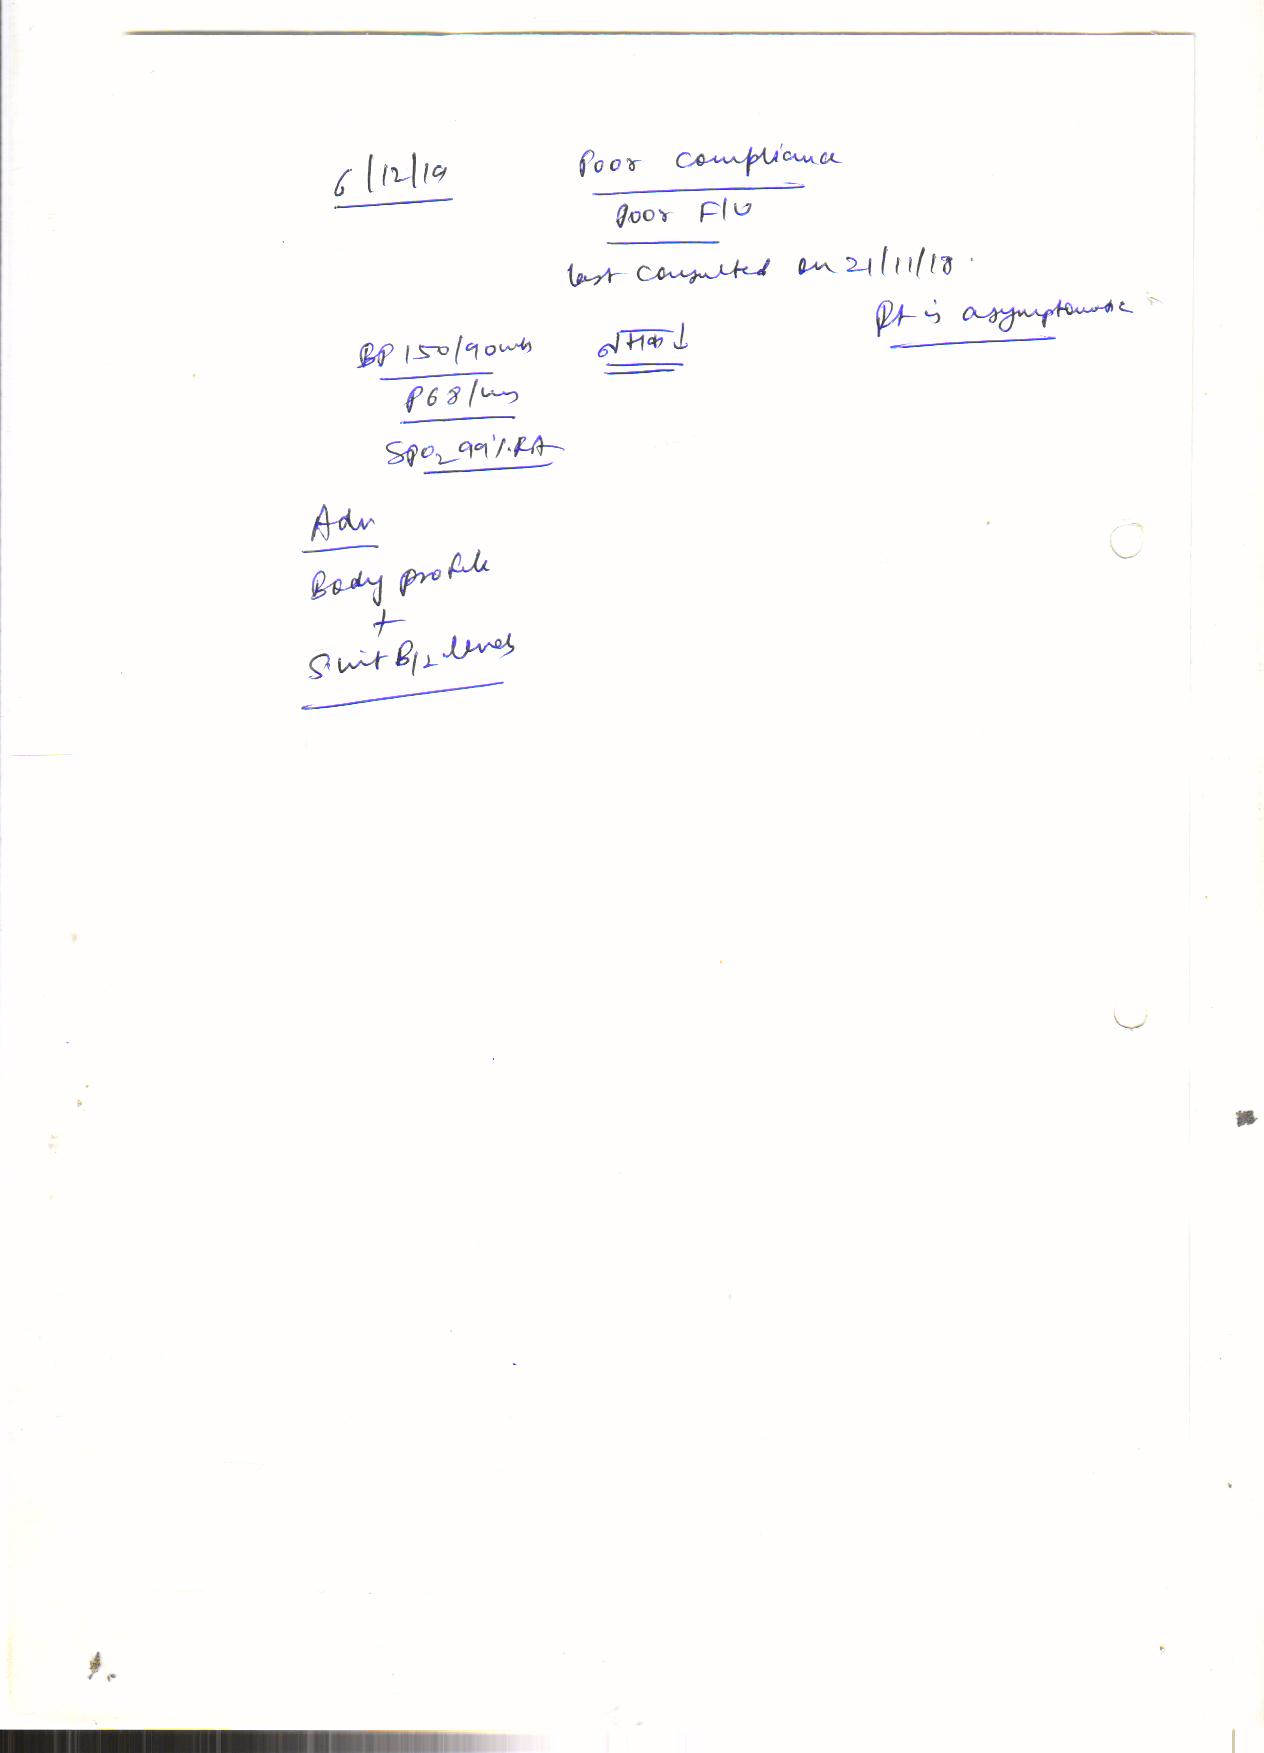 6/12/19
Poor compliance
Poor F/U
last consulted on 21/11/18.
Pt is asymptomatic
BP 150/90mh
नमक ↓
P68/m
SPO2 99% RA
Adv
Body profile
+
S. vit B12 levels